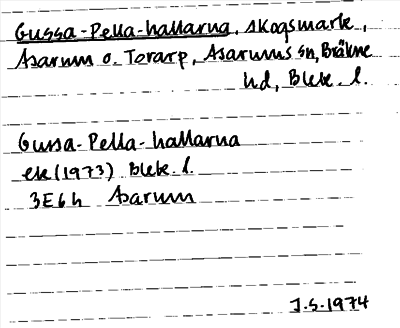 Gussa-Pella-hallarna, skogsmark,
Asarum o. Torarp, Asarums sn, Bräkne
hd, Blek. l.
Gussa-Pella-hallarna
ek (1973) Blek. l.
3E6h Asarum
J.S. 1974